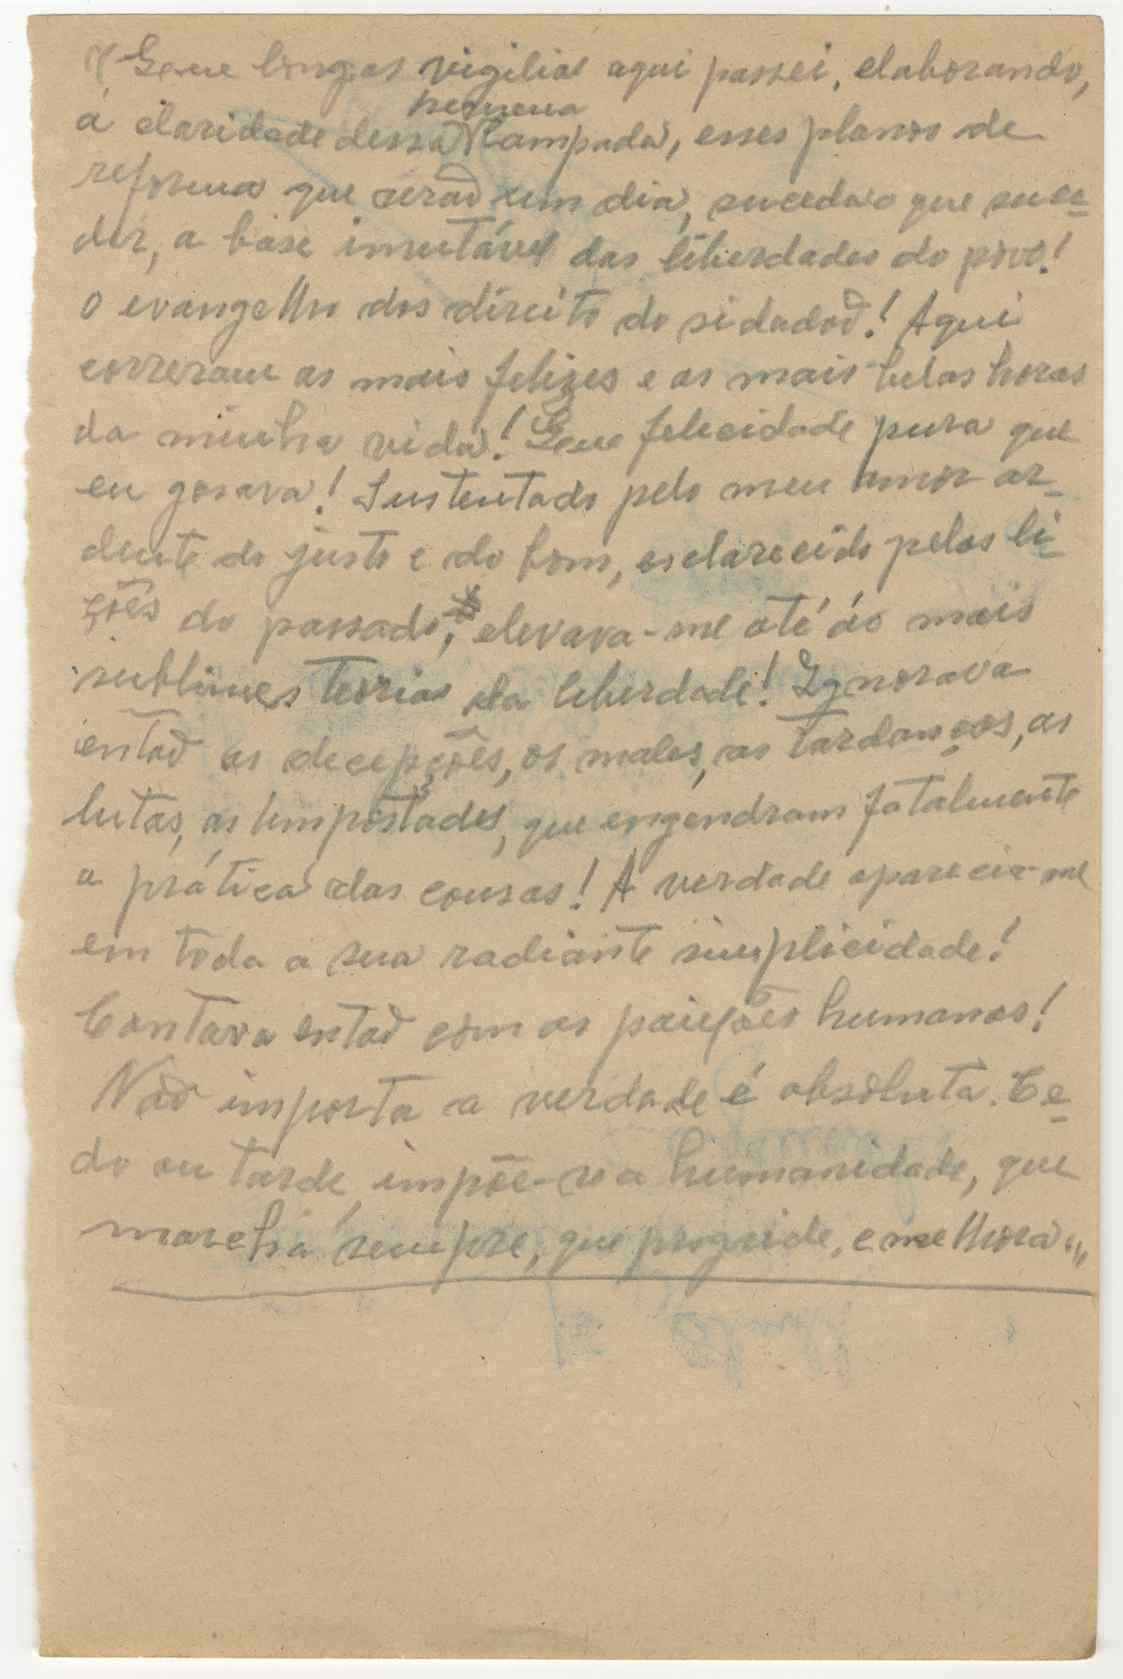 Que longas vigilias aqui passei, elaborando,
pequena
á claridade dessa lampada, esses planos de
reforma que serão um dia, suceda o que suce-
der, a base imutável das liberdades do povo!
O evangelho dos direito do sidadão! Aqui
correram as mais felizes e as mais belas horas
da minha vida! Que felicidade pura que
eu gosava! Sustentado pelo meu amor ar-
dente do justo e do bom, esclarecido pelas li-
ções do passado, elevava-me até ás mais
sublimes teorias da liberdade! Ignorava
então as decepções, os males, as tardanças, as
lutas, as tempostades, que engendram fatalmente
a prática das cousas! A verdade aparecia-me
em toda a sua radiante simplicidade!
Contava então com as paições humanas!
Não importa a verdade é absoluta. Ce-
do ou tarde, impõe-se a humanidade, que
marcha sempre, que progride, e melhora...